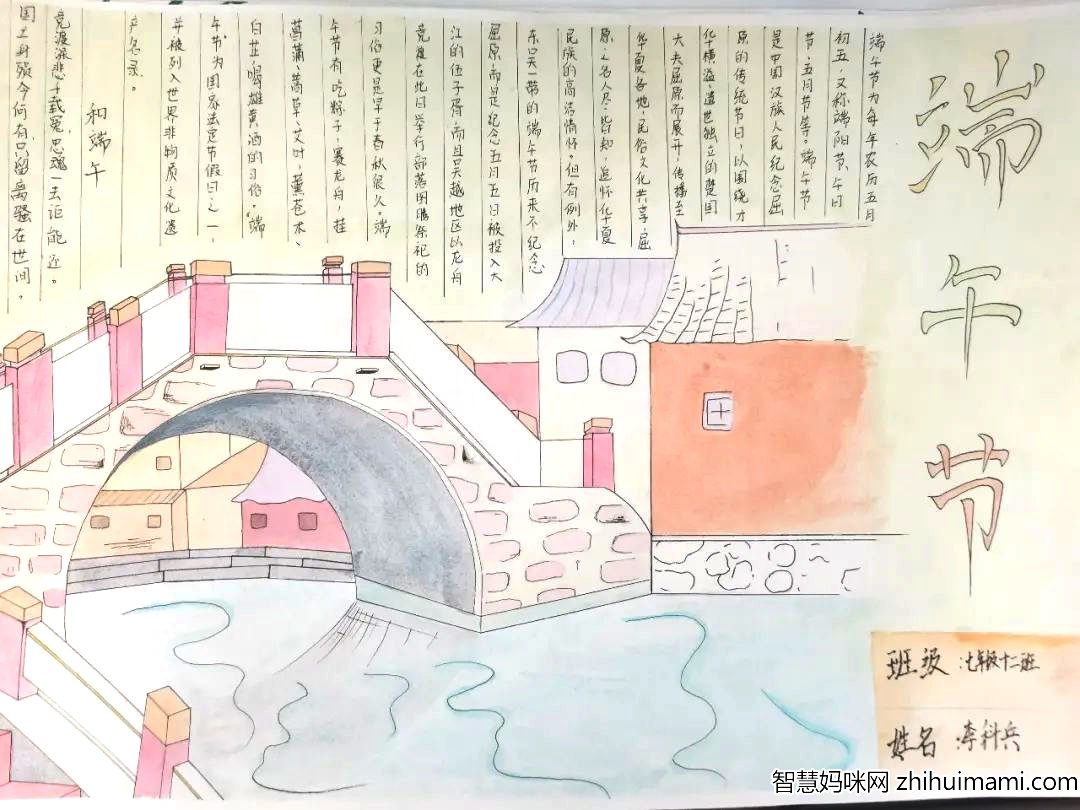 端午节
端午节为每年农历五月
初五，又称端阳节、午日
节、五月节等。端午节
是中国汉族人民纪念屈
原的传统节日，以围绕才
华横溢、遗世独立的楚国
大夫屈原而展开，传播至
华夏各地，民俗文化共享，屈
原之名人尽皆知，追怀华夏
民族的高洁情怀。但有例外，
东吴一带的端午节历来不纪念
屈原，而是纪念五月五日被投入大
江的伍子胥，而且吴越地区以龙舟
竞渡在此日举行部落图腾祭祀的
习俗更是早于春秋很久。端
午节有吃粽子，赛龙舟，挂
菖蒲、蒿草、艾叶，薰苍术、
白芷，喝雄黄酒的习俗。“端
午节”为国家法定节假日之一，
并被列入世界非物质文化遗
产名录。
和端午
竞渡深悲千载冤，忠魂一去讵能还。
国亡身殒今何有，只留离骚在世间。
班级：七年级十二班
姓名：李科兵
智慧妈咪网 zhihuimami.com